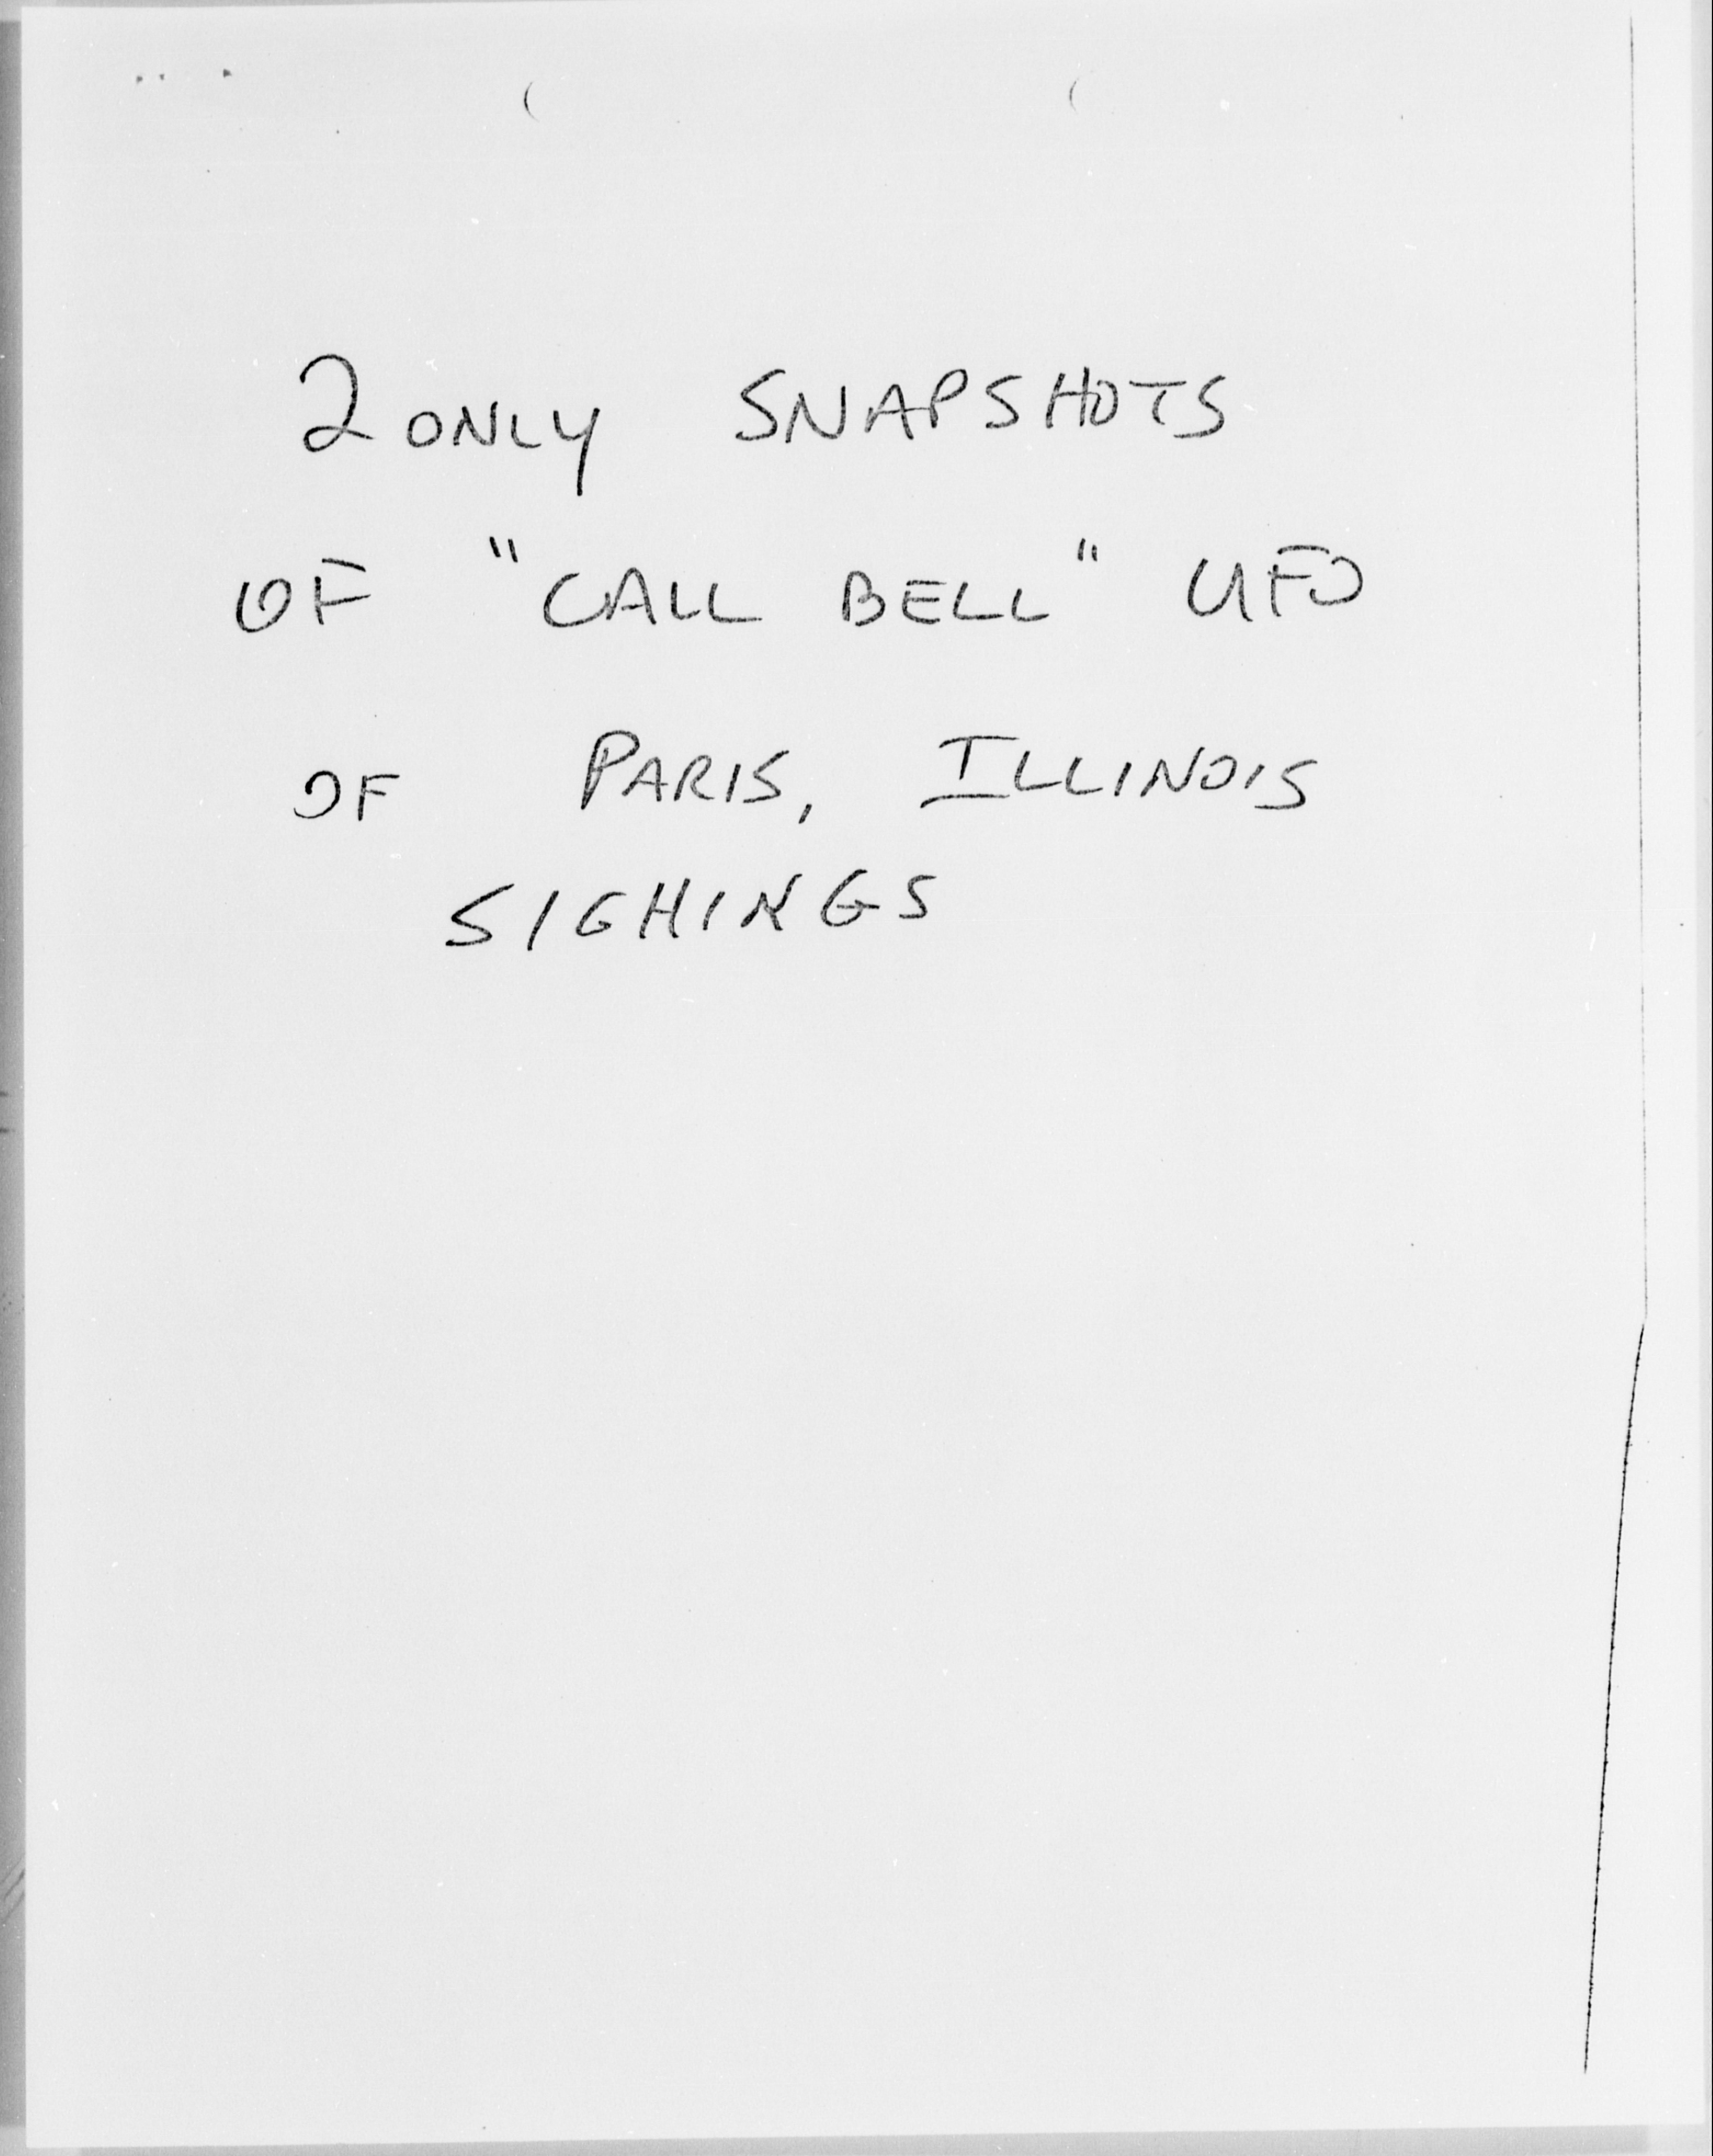 2 ONLY SNAPSHOTS
OF "CALL BELL" UFO
OF PARIS, ILLINOIS
SIGHINGS